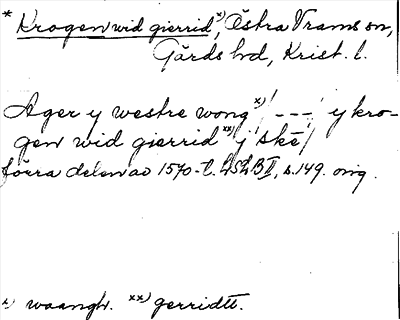 * Krogen wid gierrid x), Östra Vrams sn,
Gärds hd, Krist. l.
Ager y westre wong x)/ --- / y kro-
gen wid gierrid xx) y skē/
Södra delen av 1570-t. LSLB II, s. 149. orig.
x) waangh. xx) gerridtt.